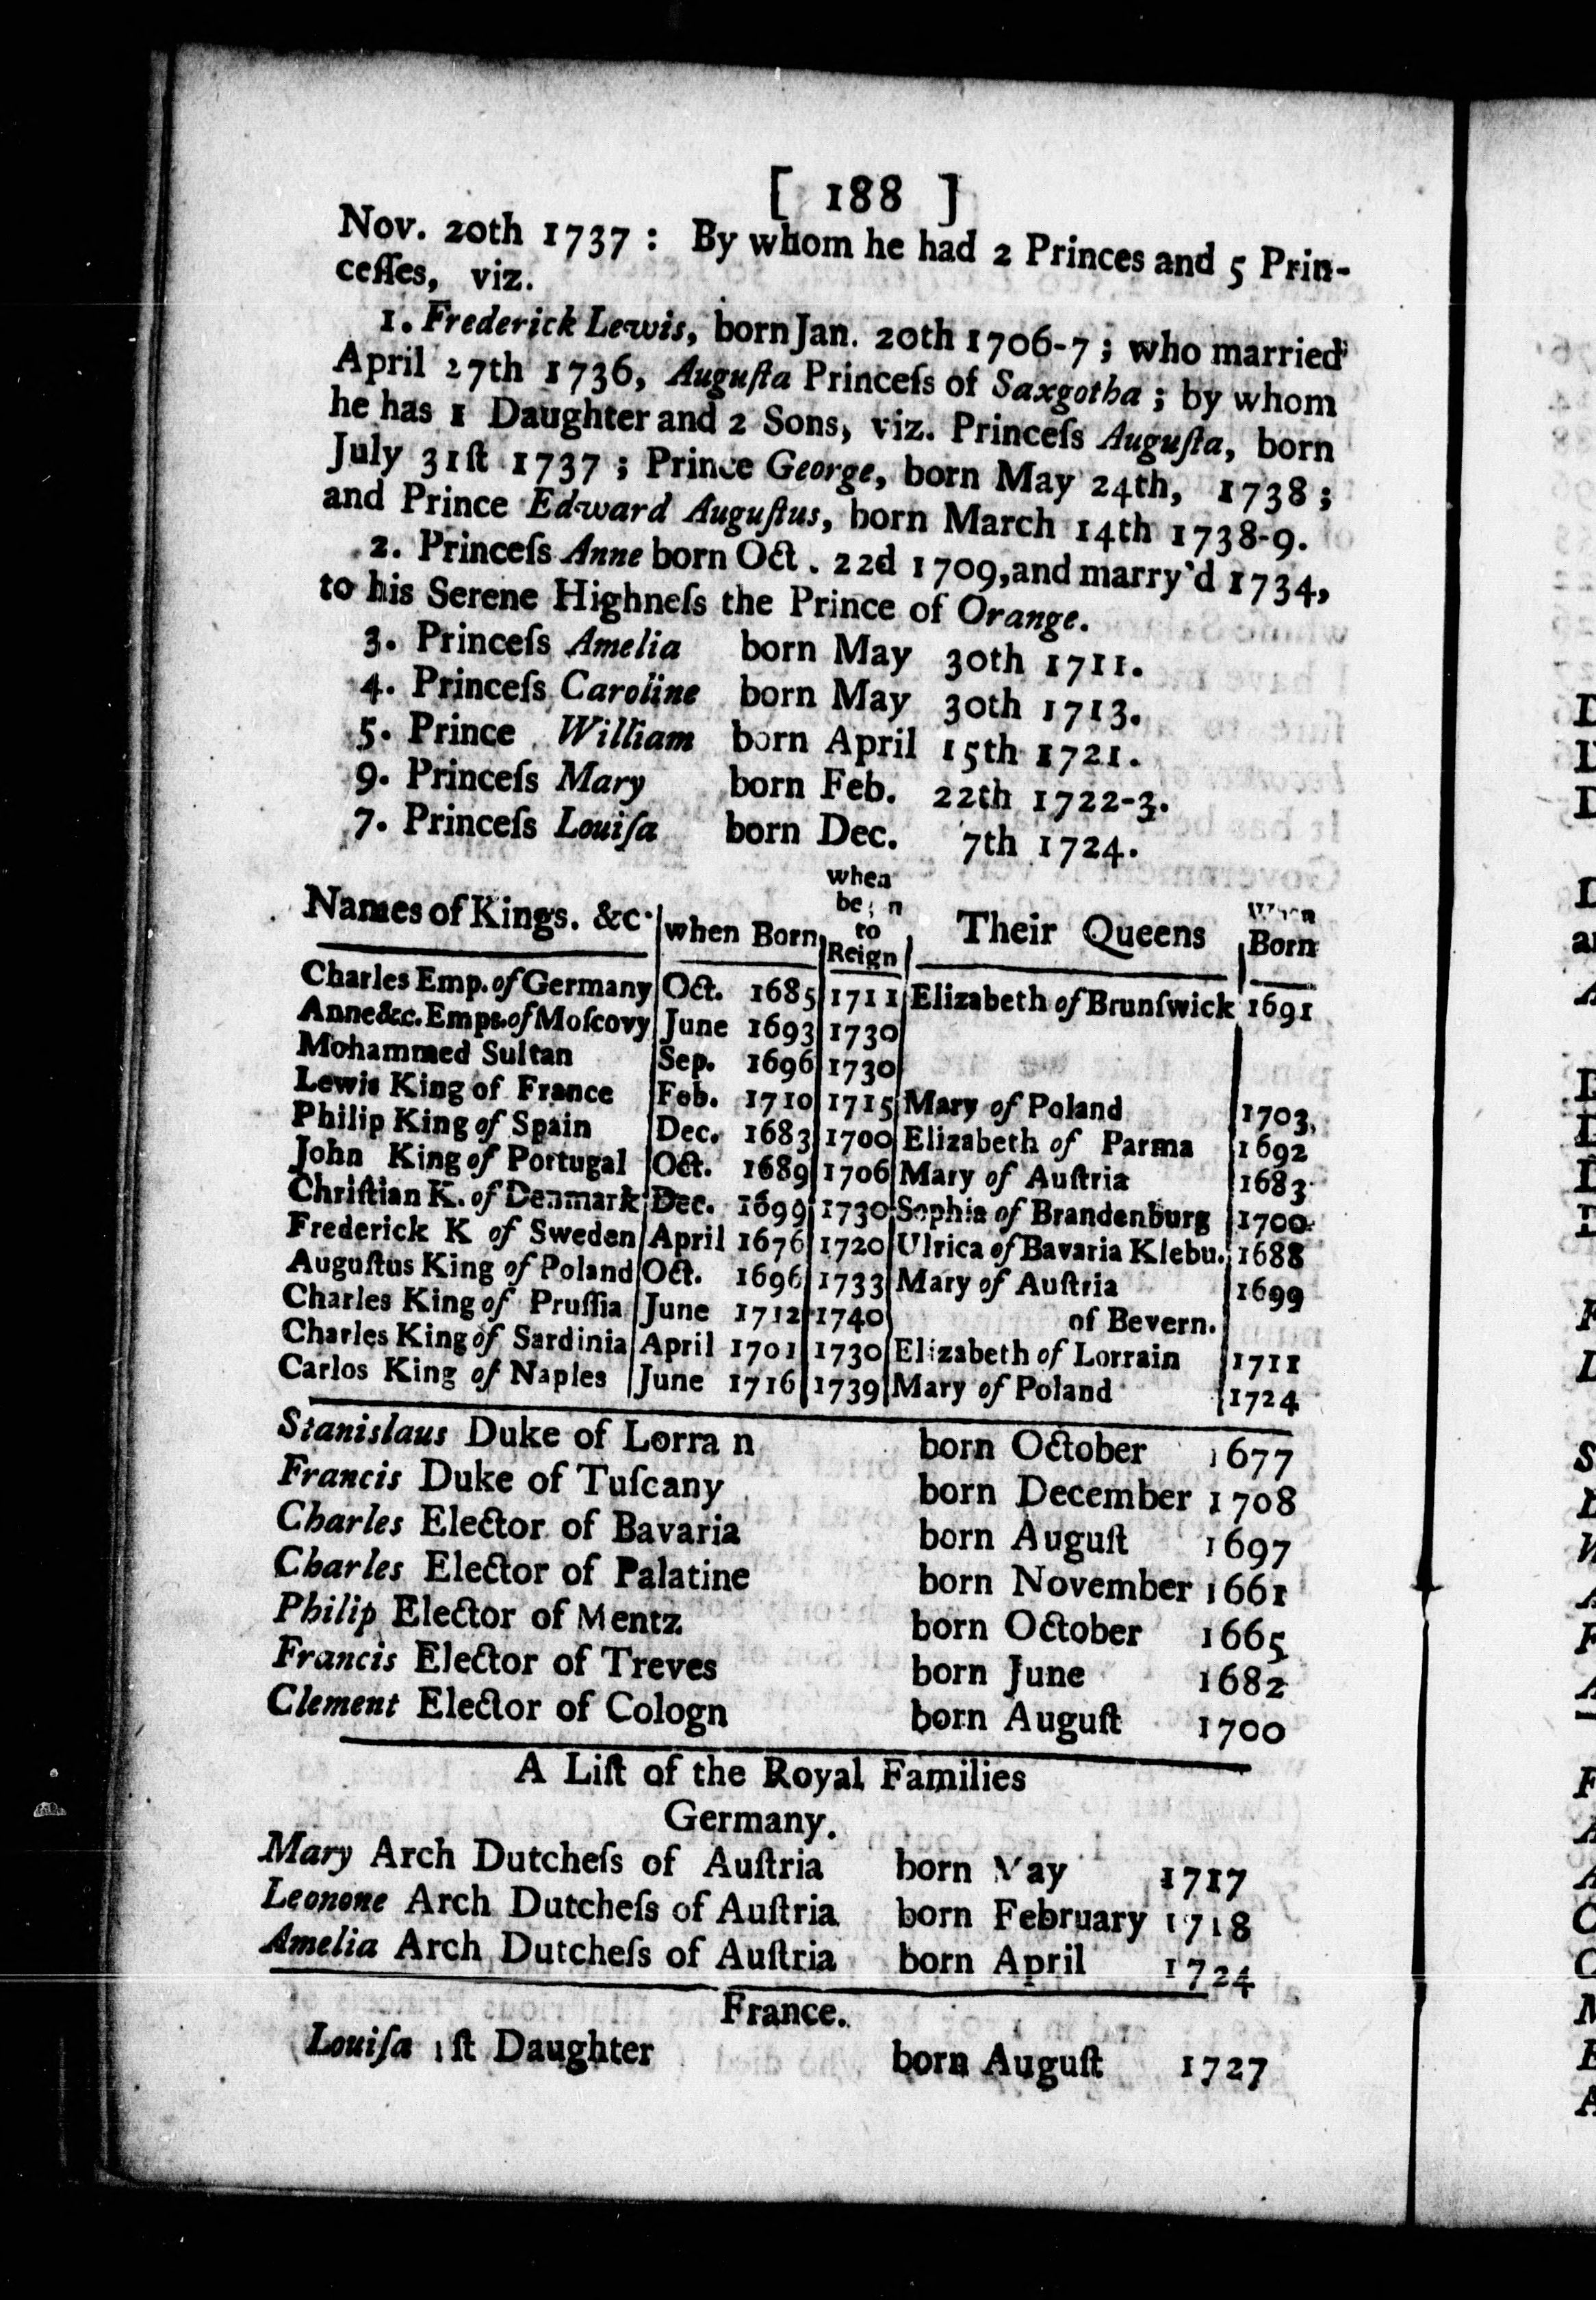 [ 188 ]
Nov. 20th 1737 : By whom he had 2 Princes and 5 Prin-
ceſſes, viz.
1. Frederick Lewis, born Jan. 20th 1706-7 ; who married
April 27th 1736, Auguſta Princeſs of Saxgotha ; by whom
he has 1 Daughter and 2 Sons, viz. Princeſs Auguſta, born
July 31ſt 1737 ; Prince George, born May 24th, 1738 ;
and Prince Edward Auguſtus, born March 14th 1738-9.
2. Princeſs Anne born Oct. 22d 1709, and marry'd 1734,
to his Serene Highneſs the Prince of Orange.
3. Princeſs Amelia born May 30th 1711.
4. Princeſs Caroline born May 30th 1713.
5. Prince William born April 15th 1721.
9. Princeſs Mary born Feb. 22th 1722-3.
7. Princeſs Louiſa born Dec. 7th 1724.
Names of Kings. &c. when Born, when began to Reign Their Queens When Born
Charles Emp. of Germany Oct. 1685 1711 Elizabeth of Brunſwick 1691
Anne &c. Emps. of Moſcovy June 1693 1730
Mohammed Sultan Sep. 1696 1730
Lewis King of France Feb. 1710 1715 Mary of Poland 1703
Philip King of Spain Dec. 1683 1700 Elizabeth of Parma 1692
John King of Portugal Oct. 1689 1706 Mary of Auſtria 1683
Chriſtian K. of Denmark Dec. 1699 1730 Sophia of Brandenburg 1700
Frederick K of Sweden April 1676 1720 Ulrica of Bavaria Klebu. 1688
Auguſtus King of Poland Oct. 1696 1733 Mary of Auſtria 1699
Charles King of Pruſſia June 1712 1740 of Bevern.
Charles King of Sardinia April 1701 1730 Elizabeth of Lorrain 1711
Carlos King of Naples June 1716 1739 Mary of Poland 1724
Stanislaus Duke of Lorra n born October 1677
Francis Duke of Tuſcany born December 1708
Charles Elector of Bavaria born Auguſt 1697
Charles Elector of Palatine born November 1661
Philip Elector of Mentz born October 1665
Francis Elector of Treves born June 1682
Clement Elector of Cologn born Auguſt 1700
A Liſt of the Royal Families
Germany.
Mary Arch Dutcheſs of Auſtria born May 1717
Leonone Arch Dutcheſs of Auſtria born February 1718
Amelia Arch Dutcheſs of Auſtria born April 1724
France.
Louiſa 1ſt Daughter born Auguſt 1727